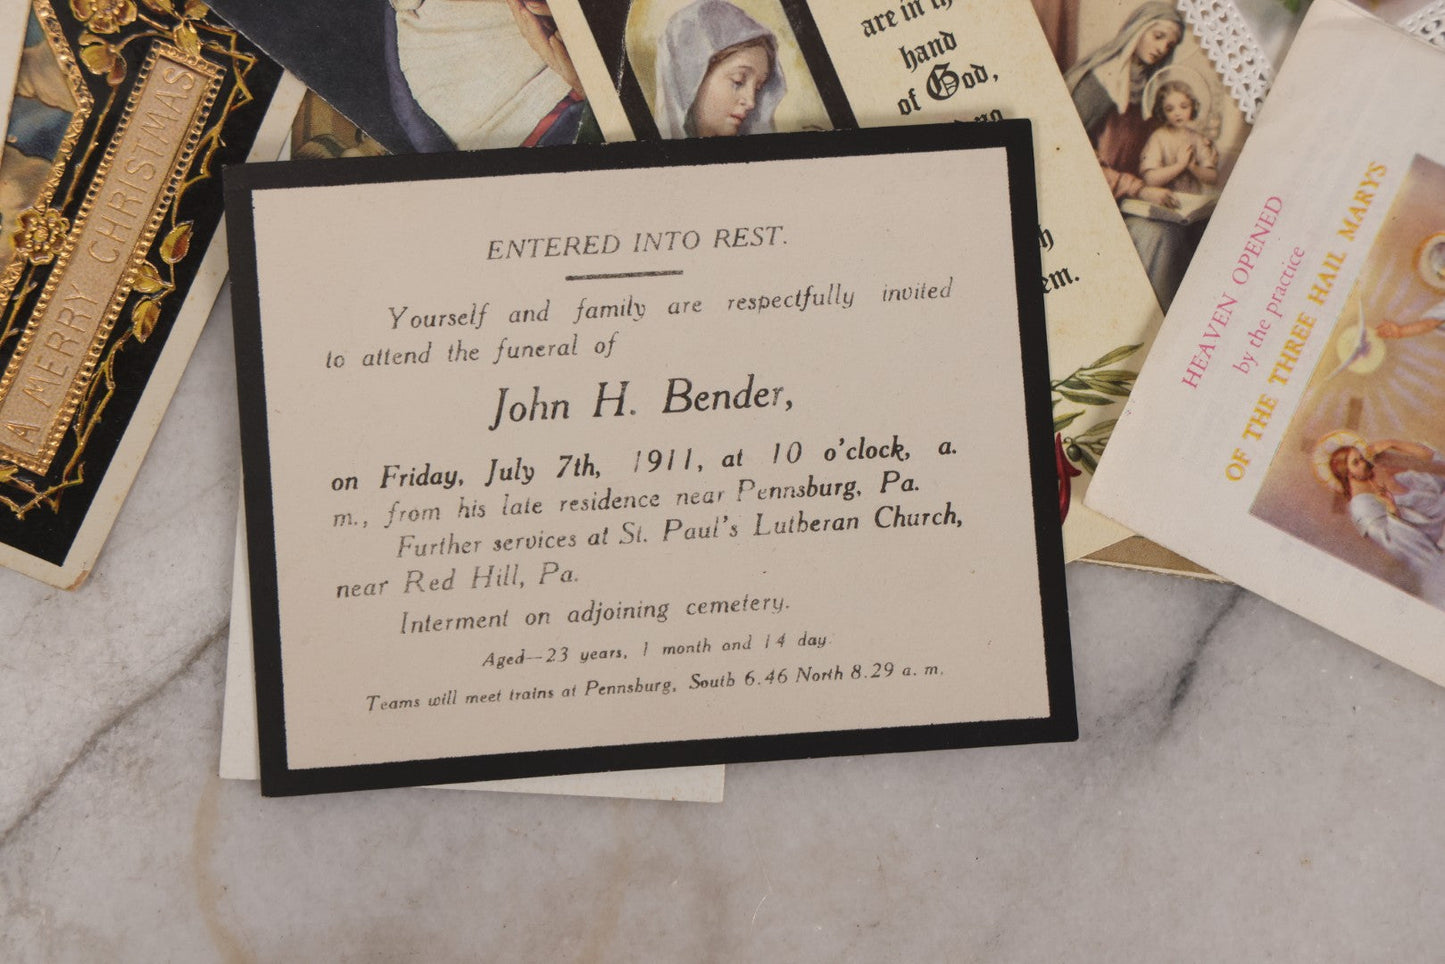 A MERRY CHRISTMAS
are in
hand
of God,
no
em.
ENTERED INTO REST.
Yourself and family are respectfully invited
to attend the funeral of
John H. Bender,
on Friday, July 7th, 1911, at 10 o'clock, a.
m., from his late residence near Pennsburg, Pa.
Further services at St. Paul's Lutheran Church,
near Red Hill, Pa.
Interment on adjoining cemetery.
Aged—23 years, 1 month and 14 day.
Teams will meet trains at Pennsburg, South 6.46 North 8.29 a. m.
HEAVEN OPENED
by the practice
OF THE THREE HAIL MARYS